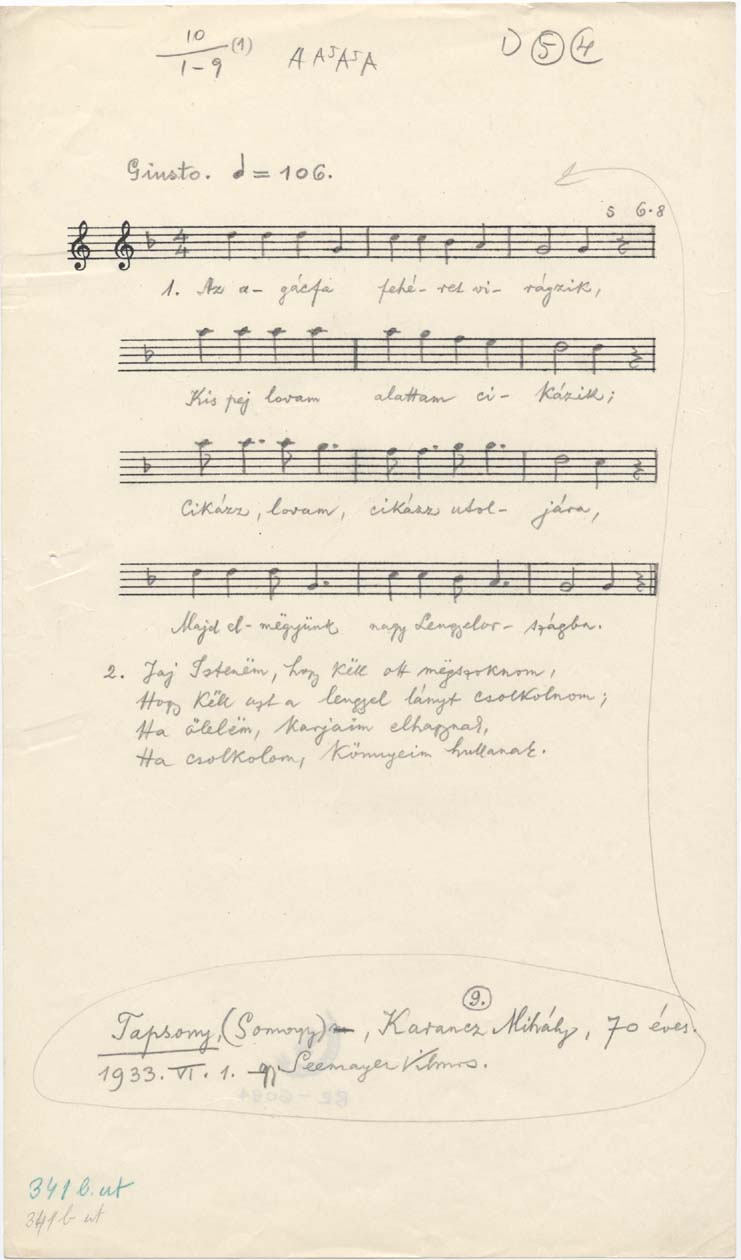 10
1-9
(1)
A A⁵A⁵A
D ⑤ ④
Giusto. = 106.
5 6·8
4
4
1. Az a- gácfa fehé- ret vi- rágzik,
Kis pej lovam alattam ci- kázik;
Cikázz, lovam, cikázz utol- jára,
Majd el- mëgyünk nagy Lengyelor- szágba.
2. Jaj Istenëm, hogy këll ott mëgszoknom,
Hogy këll azt a lengyel lányt csolkolnom;
Ha ölelëm, karjaim elhagynak,
Ha csolkolom, könnyeim hullanak.
9.
Tapsony, (Somogy), Karancz Mihály, 70 éves.
1933. VI. 1. Seemayer Vilmos.
341 b. ut
341 b ut